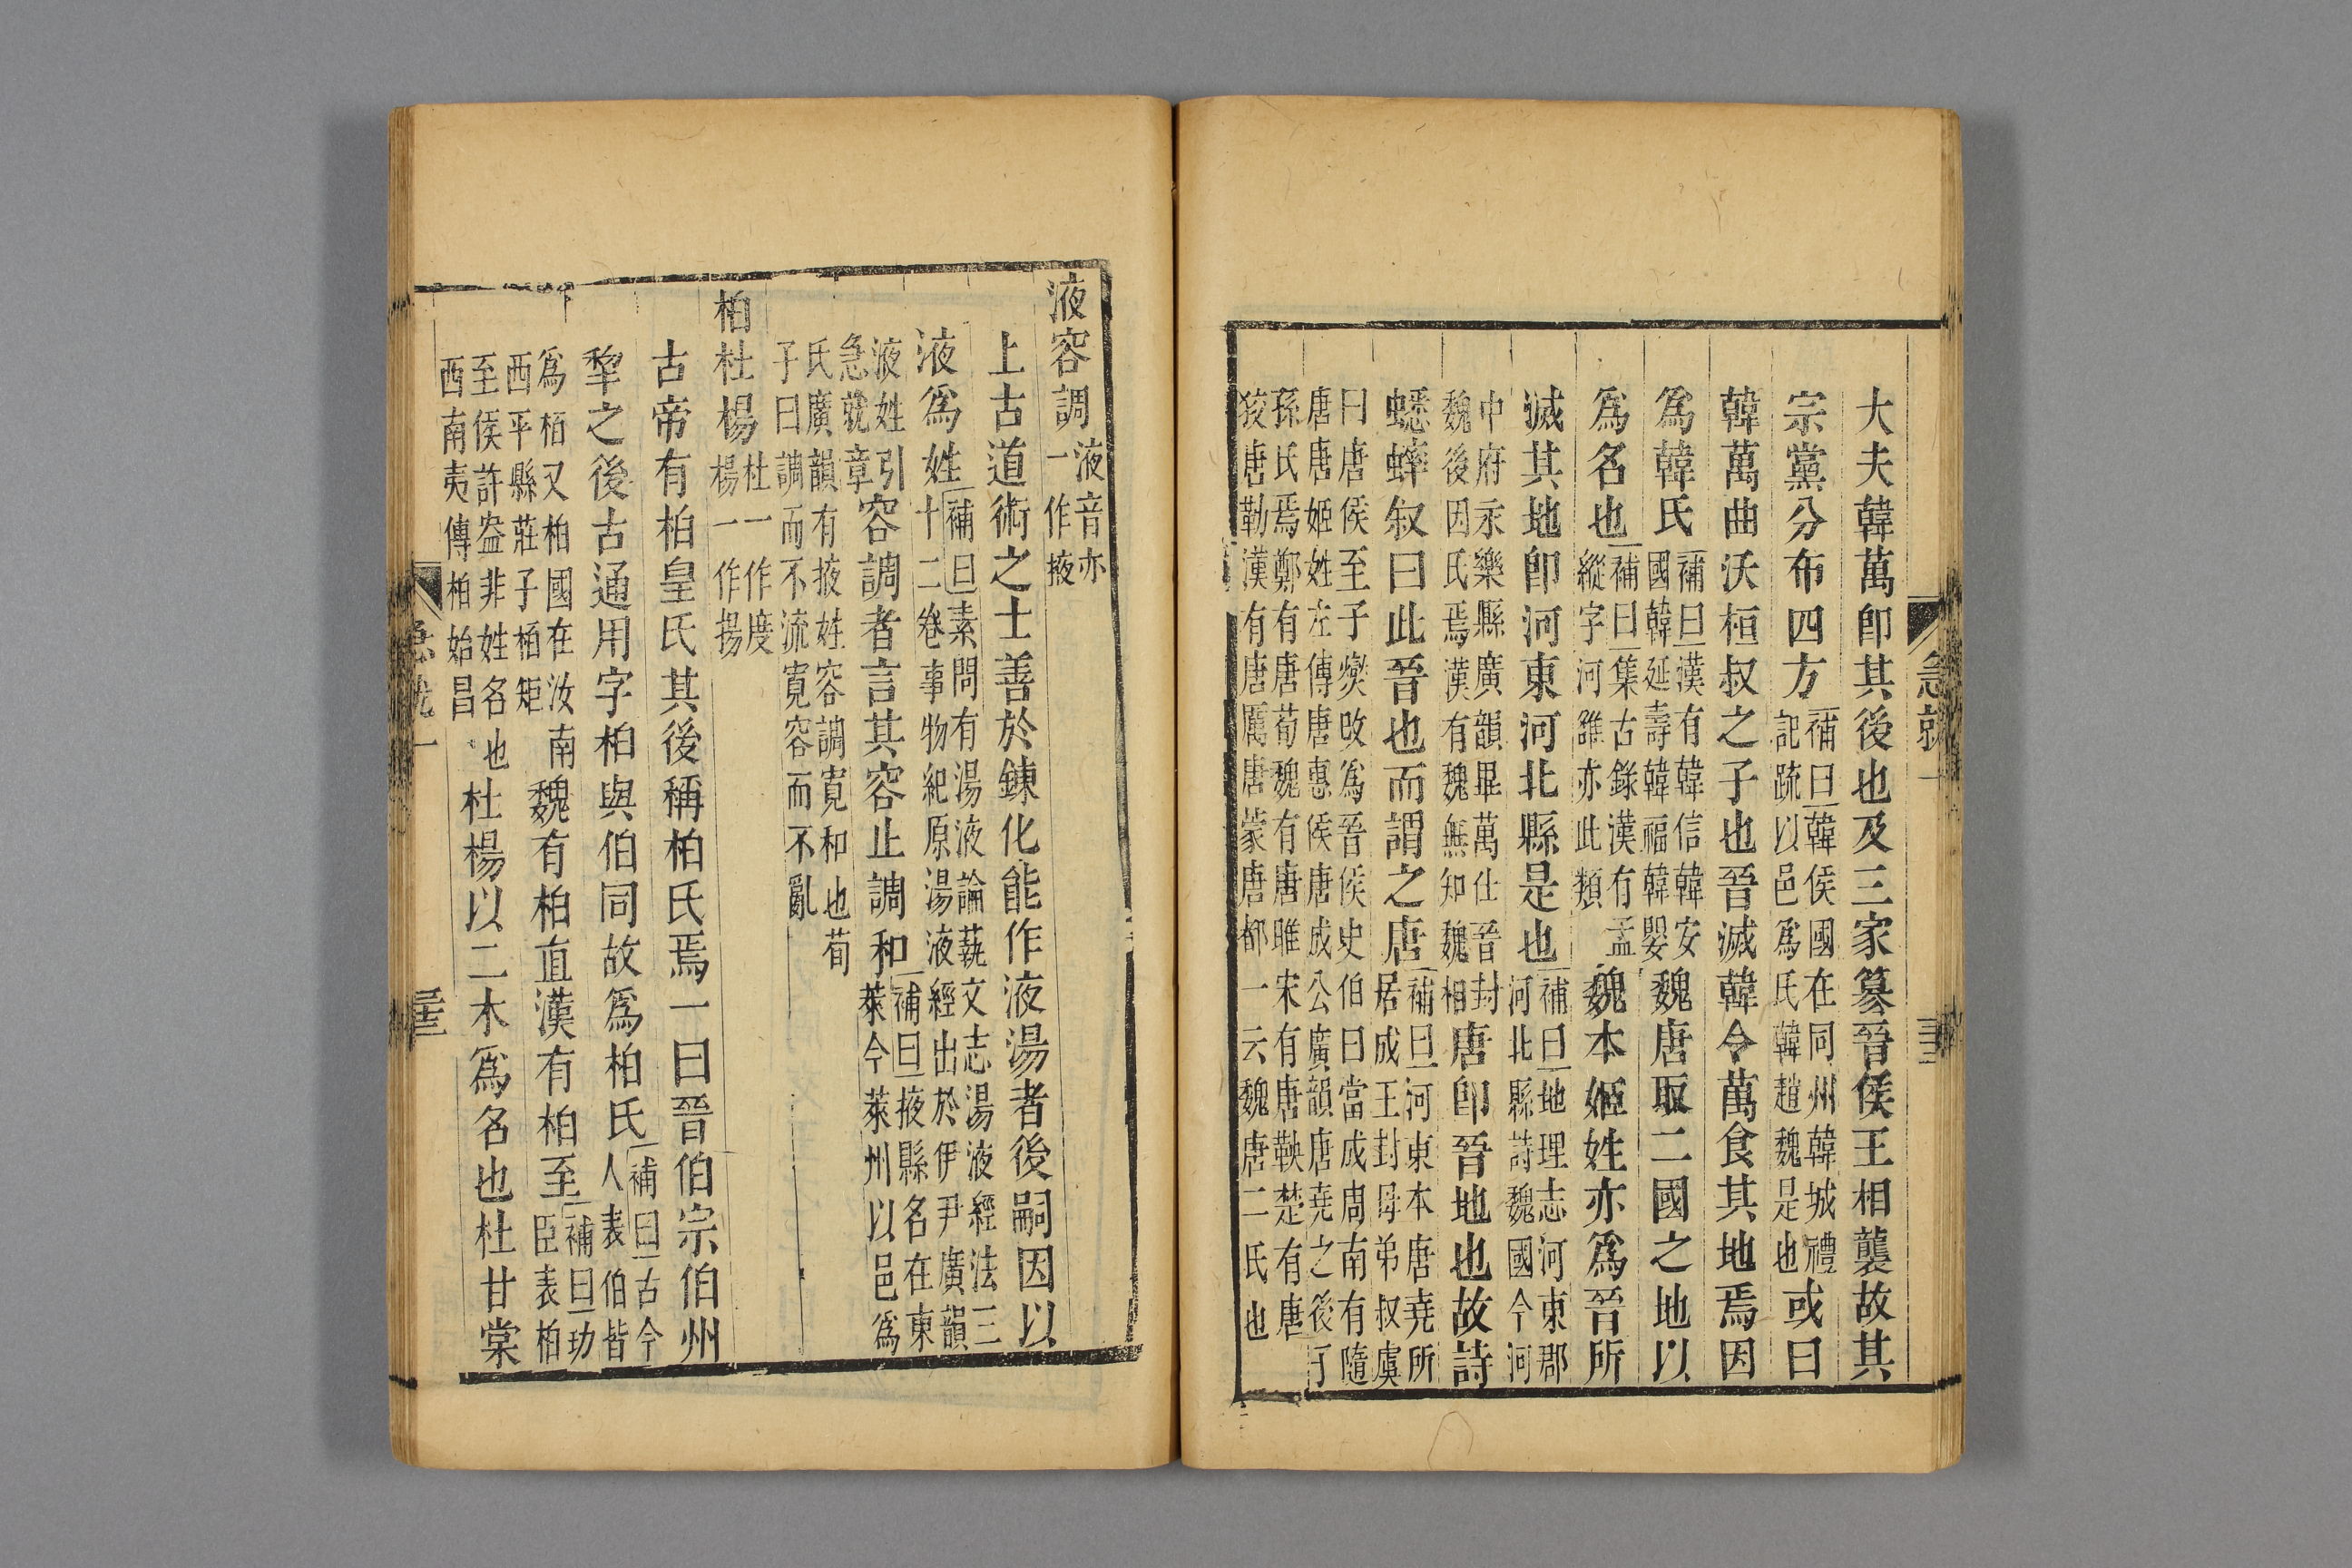 大夫韓萬卽其後也及三家篡晉侯王相襲故其
宗黨分布四方補曰韓侯國在同州韓城禮
記疏以邑爲氏韓趙魏是也或曰
韓萬曲沃桓叔之子也晉滅韓令萬食其地焉因
爲韓氏補曰漢有韓信韓安
國韓延壽韓福韓嬰魏唐取二國之地以
爲名也補曰集古錄漢有孟
縱字河雒亦此類魏本姬姓亦爲晉所
滅其地卽河東河北縣是也補曰地理志河東郡
河北縣詩魏國今河
中府永樂縣廣韻畢萬仕晉封
魏後因氏焉漢有魏無知魏相唐卽晉地也故詩
蟋蟀叙曰此晉也而謂之唐補曰河東本唐堯所
居成王封母弟叔虞
曰唐侯至子燮改爲晉侯史伯曰當成周南有隨
唐唐姬姓左傳唐惠侯唐成公廣韻唐堯之後
孫氏焉鄭有唐苟魏有唐雎宋有唐鞅楚有唐
狡唐勒漢有唐厲唐蒙唐都一云魏唐二氏也
急就一
液容調液音亦
一作掖
上古道術之士善於鍊化能作液湯者後嗣因以
液爲姓補曰素問有湯液論蓺文志湯液經法三
十二卷事物紀原湯液經出於伊尹廣韻
液姓引
急就章容調者言其容止調和補曰掖縣名在東
萊今萊州以邑爲
氏廣韻有掖姓容調寬和也荀
子曰調而不流寬容而不亂
柏杜楊杜一作度
楊一作揚
古帝有柏皇氏其後稱柏氏焉一曰晉伯宗伯州
犂之後古通用字柏與伯同故爲柏氏補曰古今
人表伯皆
爲栢又柏國在汝南
西平縣莊子栢矩魏有柏直漢有柏至補曰功
臣表柏
至侯許盎非姓名也
西南夷傳柏始昌杜楊以二木爲名也杜甘棠
急就一